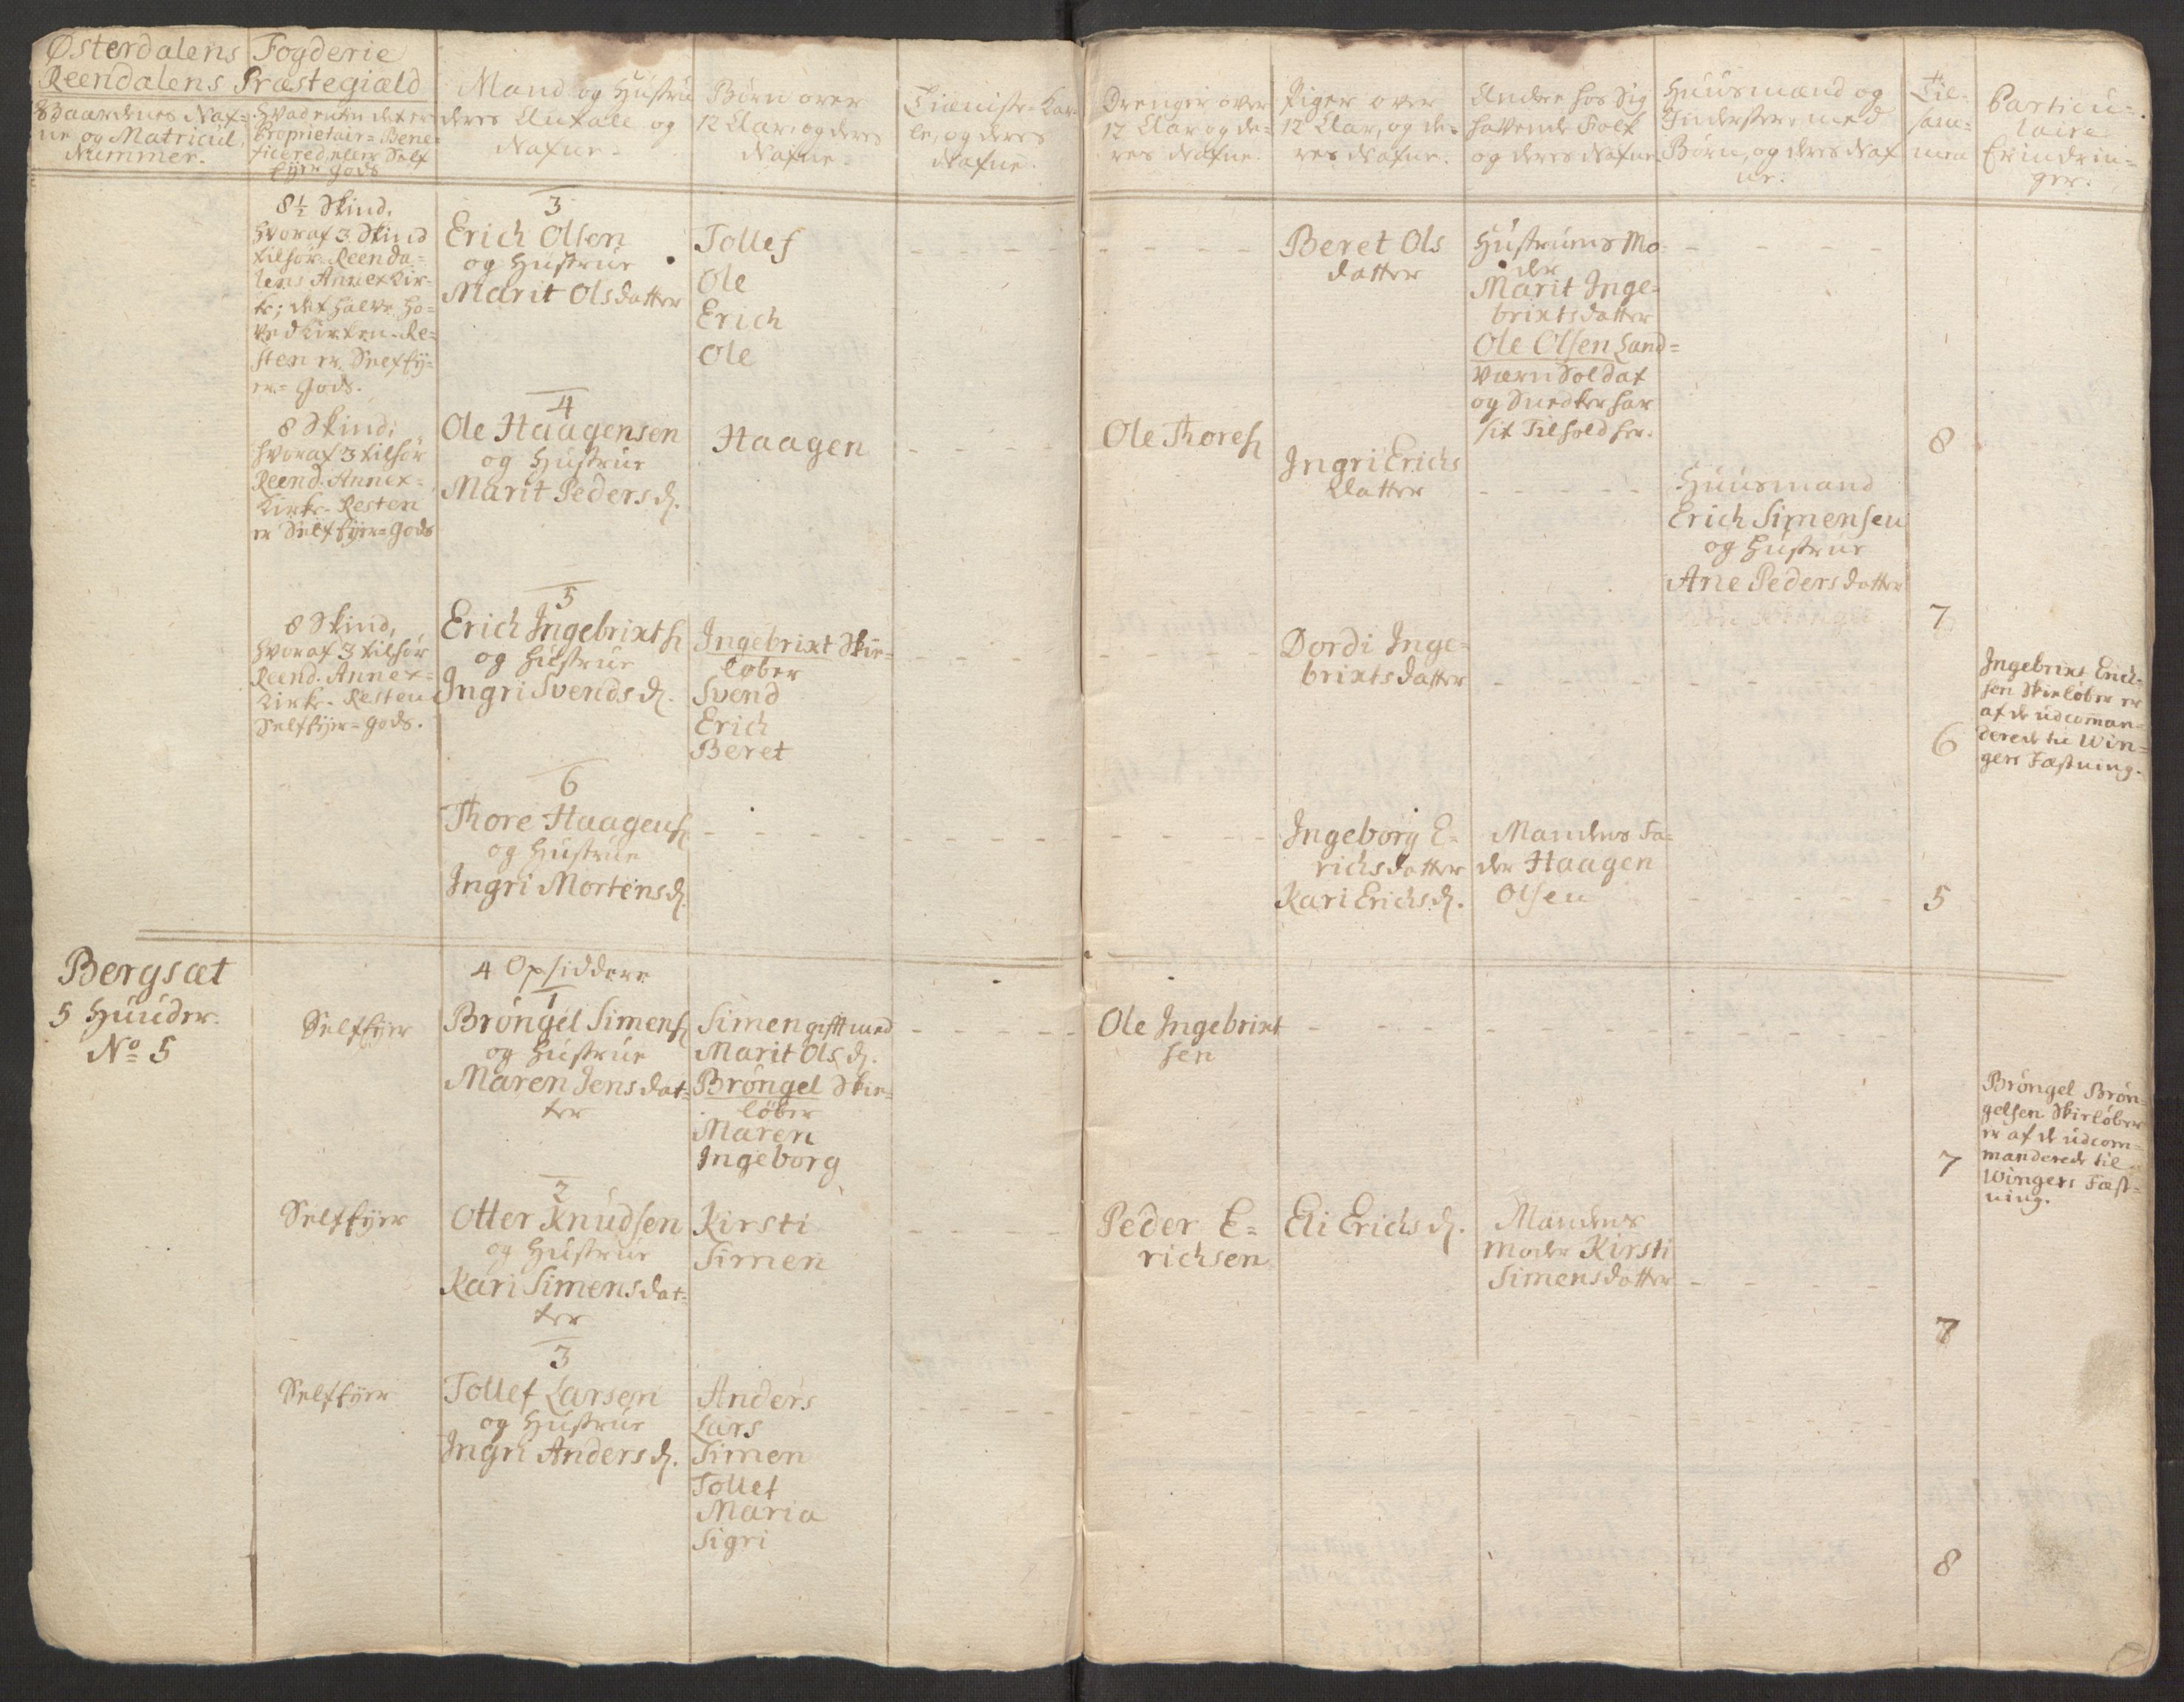 Østerdalens Fogderie
Reendalens Præstegiæld
Gaardenes Naf-
ne, og Matricul,
Nummer.
Hvad enten det er
Proprietair- Bene-
ficered, eller Self
Eyer Gods
Mand og Hustru
deres Antall og
Nafne-
Børn over
12 Aar, og deres
Nafne-
Tieniste-Kar-
le, og deres
Nafne.
Drenger over
12 Aar og de-
res Nafne.
Piger over
12 Aar, og de-
res Nafne.
Andre hos Sig
havende Folk
og deres Nafne
Huusmænd og
Inderster, med
Børn, og deres Naf
ne.
Til-
sam-
men
Particu-
laire
Erindrin-
ger.
8½ Skind,
hvoraf 3 Skind
tilhør Reenda-
lens Annex Kir-
ke; det halve Ho-
ved Kirken- Re-
sten er Selfey-
er- Gods.
3
Erich Olsen
og Hustrue
Marit Olsdatter
Tollef
Ole
Erich
Ole
Beret Ols
datter
Hustruns Mo-
der
Marit Inge-
brixtsdatter
Ole Olsen Land-
værn Soldat
og Snedker har
sit Tilhold her.
8
8 Skind;
hvoraf 3 tilhør
Reend. Annex-
Kirke- Resten
er Selfeyer-Gods
4
Ole Haagensen
og Hustrue
Marit Pedersd.
Haagen
Ole Thores.
Ingri Erichs
Datter
Huusmand
Erich Simensen
og Hustrue
Ane Pedersdatter
7
8 Skind,
hvoraf 3 tilhør
Reend. Annex-
Kirke- Resten
Selfeyer-Gods.
5
Erich Ingebrixts.
og Hustrue
Ingri Svendsd.
Ingebrixt Skie-
løber
Svend
Erich
Beret
Dordi Inge-
brixtsdatter
6
Ingebrixt Erich-
sen Skieløber er
af de udcomman-
derede til Win-
gers Fæstning.
6
Thore Haagens.
og Hustrue
Ingri Mortensd.
Ingeborg E-
richsdatter
Kari Erichsd.
Mandens Fa-
der Haagen
Olsen
5
Bergsæt
5 Huuder.
No 5
4 Opsiddere
1
Selfeyer
Brøngel Simens.
og Hustrue
Maren Jensdat-
ter
Simen gift med
Marit Olsd.
Brøngel Skie-
løber
Maren
Ingeborg
Ole Ingebrixt
sen
7
Brøngel Brøn-
gelsen Skieløber
er af de udcom-
manderede til
Wingers Fæst-
ning.
2
Selfeyer
Otter Knudsen
og Hustrue
Kari Simensdat-
ter
Kirsti
Simen
Peder E-
richsen
Eli Erichsd.
Mandens
moder Kirsti
Simensdatter
7
3
Selfeyer
Tollef Larsen
og Hustrue
Ingri Andersd.
Anders
Lars
Simen
Tollef
Maria
Sigri
8